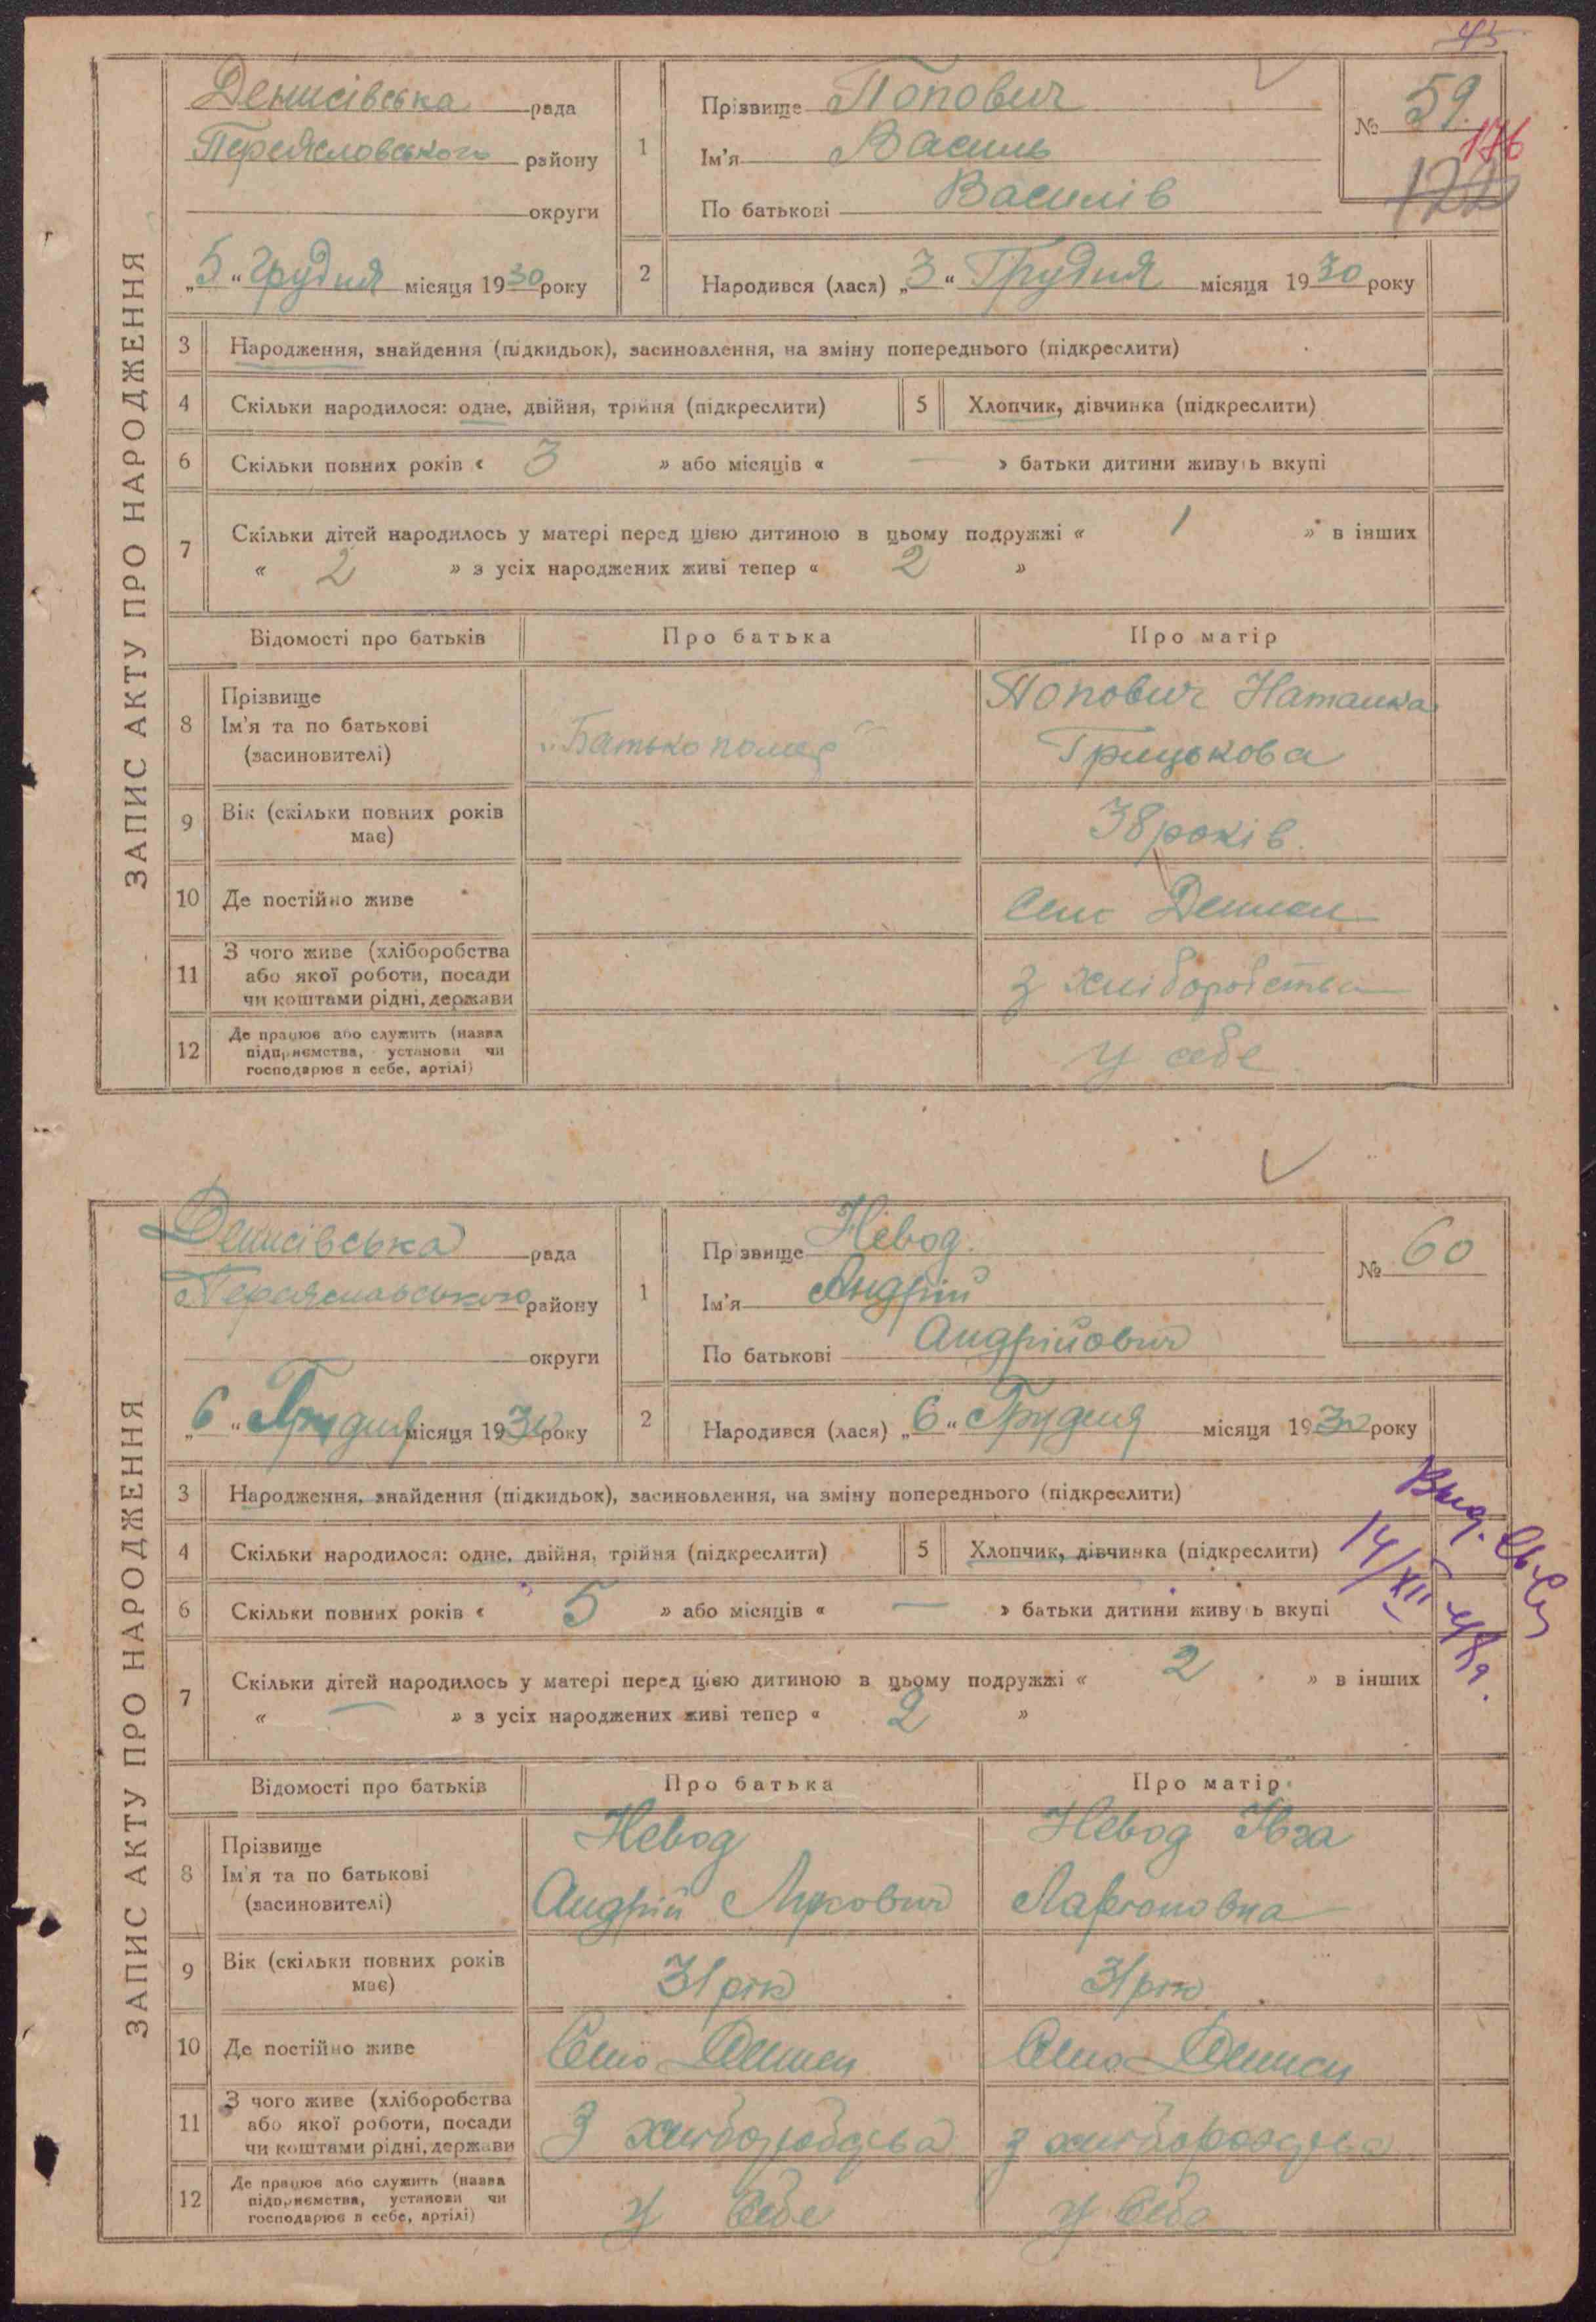 45
ЗАПИС АКТУ ПРО НАРОДЖЕННЯ
Денисівська рада
Переяславського району
округи
„5“ Грудня місяця 1930 року
1
Прізвище Попович
Ім'я Василь
По батькові Василів
№ 59.
176
122
2
Народився (лася) „3“ Грудня місяця 1930 року
3 Народження, знайдення (підкидьок), засиновлення, на зміну попереднього (підкреслити)
4 Скільки народилося: одне, двійня, трійня (підкреслити) 5 Хлопчик, дівчинка (підкреслити)
6 Скільки повних років « 3 » або місяців « — » батьки дитини живуть вкупі
7 Скільки дітей народилось у матері перед цією дитиною в цьому подружжі « 1 » в інших
« 2 » з усіх народжених живі тепер « 2 »
Відомості про батьків Про батька Про матір
8 Прізвище
Ім'я та по батькові
(засиновителі)
„Батько помер“
Попович Наталка
Грицькова
9 Вік (скільки повних років
має)
38 років.
10 Де постійно живе
Село Дениси
11 З чого живе (хліборобства
або якої роботи, посади
чи коштами рідні, держави
з хліборобства
12 Де працює або служить (назва
підприємства, установи чи
господарює в себе, артілі)
у себе
ЗАПИС АКТУ ПРО НАРОДЖЕННЯ
Денисівська рада
Переяславського району
округи
„6“ Грудня місяця 1930 року
1
Прізвище Невод.
Ім'я Андрій
По батькові Андрійович
№ 60
2
Народився (лася) „6“ Грудня місяця 1930 року
3 Народження, знайдення (підкидьок), засиновлення, на зміну попереднього (підкреслити)
4 Скільки народилося: одне, двійня, трійня (підкреслити) 5 Хлопчик, дівчинка (підкреслити)
6 Скільки повних років « 5 » або місяців « — » батьки дитини живуть вкупі
7 Скільки дітей народилось у матері перед цією дитиною в цьому подружжі « 2 » в інших
« — » з усіх народжених живі тепер « 2 »
Выд.
14/XII
Відомості про батьків Про батька Про матір
8 Прізвище
Ім'я та по батькові
(засиновителі)
Невод
Андрій Лукович
Невод
9 Вік (скільки повних років
має)
31 рік
31 рік
10 Де постійно живе
Село Дениси
Село Дениси
11 З чого живе (хліборобства
або якої роботи, посади
чи коштами рідні, держави
З хліборобства
з хліборобства
12 Де працює або служить (назва
підприємства, установи чи
господарює в себе, артілі)
у себе
у себе